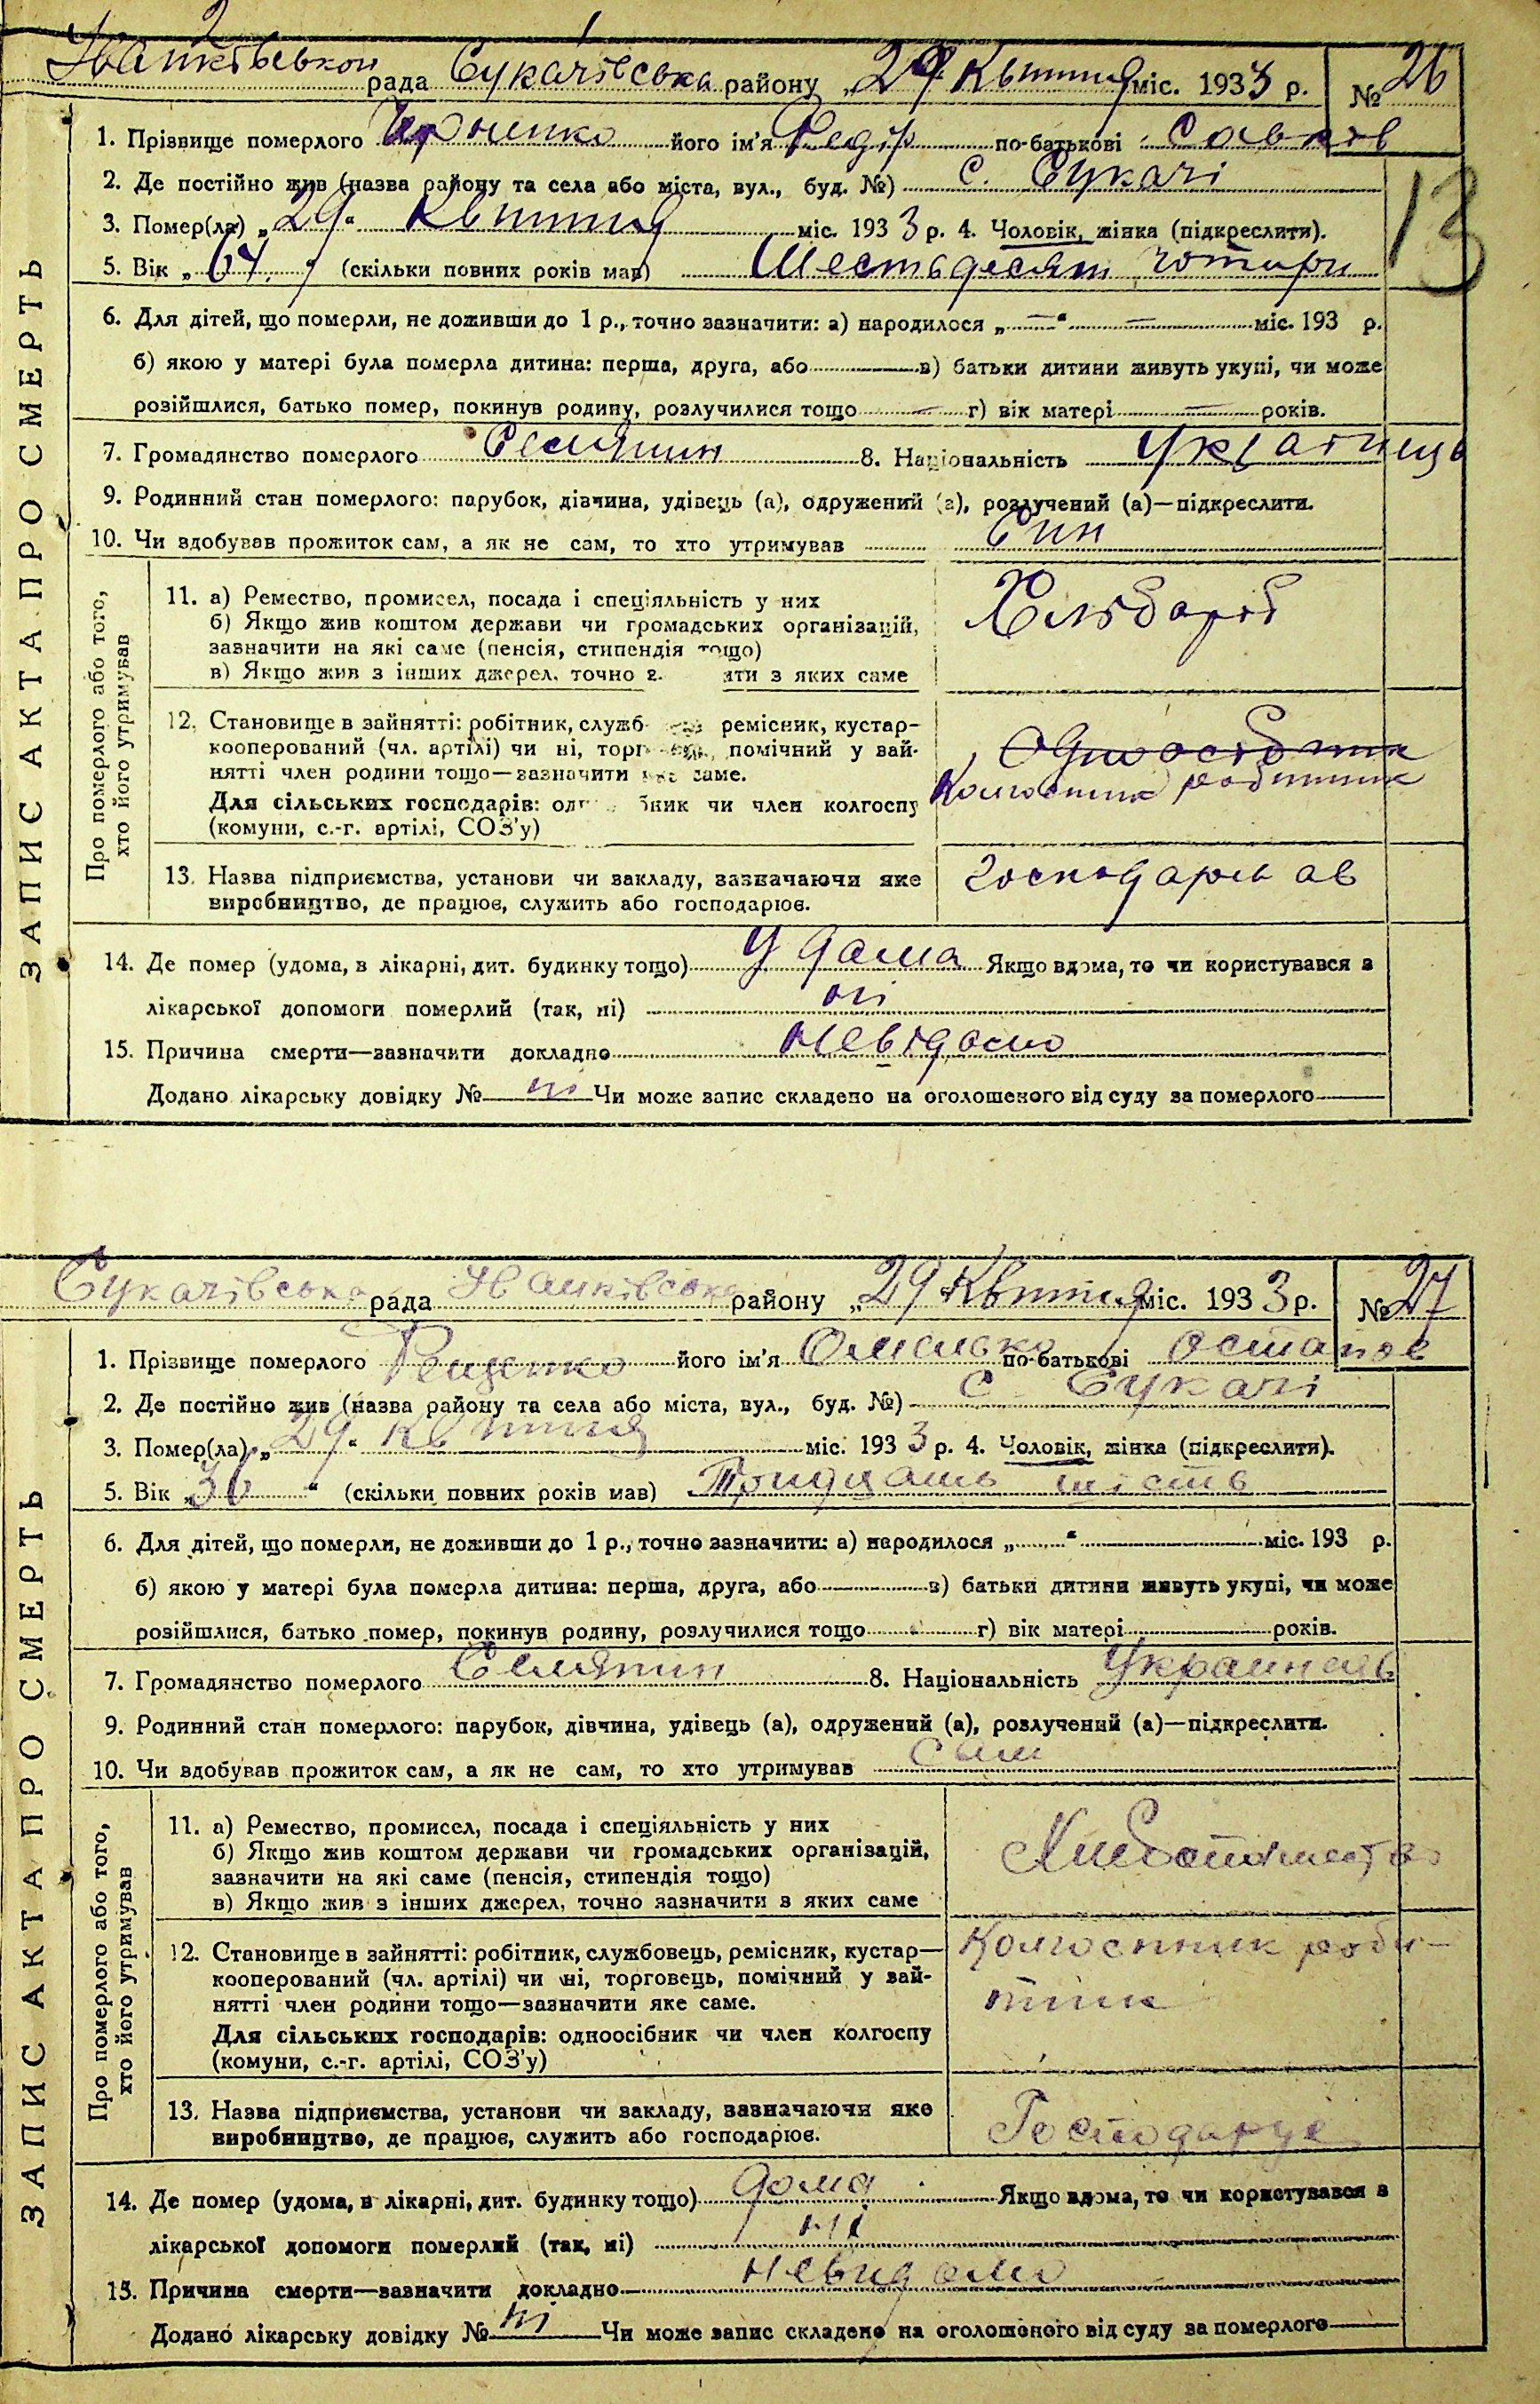 Іванківської рада Сукачівська району „29 Квітня міс. 1933 р. № 26
1. Прізвище померлого його ім'я Федір по-батькові Савків
2. Де постійно жив (назва району та села або міста, вул., буд. №) с. Сукачі
13
3. Помер(ла) „29“ Квітня міс. 1933 р. 4. Чоловік, жінка (підкреслити).
5. Вік „64“ (скільки повних років мав) Шестьдесят чотири
6. Для дітей, що померли, не доживши до 1 р., точно зазначити: а) народилося „—“ — міс. 193 р.
б) якою у матері була померла дитина: перша, друга, або в) батьки дитини живуть укупі, чи може
розійшлися, батько помер, покинув родину, розлучилися тощо — г) вік матері — років.
7. Громадянство померлого Селянин 8. Національність Українець
9. Родинний стан померлого: парубок, дівчина, удівець (а), одружений (а), розлучений (а)—підкреслити.
10. Чи здобував прожиток сам, а як не сам, то хто утримував Син
ЗАПИС АКТА ПРО СМЕРТЬ
Про померлого або того,
хто його утримував
11. а) Ремество, промисел, посада і спеціяльність у них
б) Якщо жив коштом держави чи громадських організацій,
зазначити на які саме (пенсія, стипендія тощо)
в) Якщо жив з інших джерел, точно з ати з яких саме
Хлібороб
12. Становище в зайнятті: робітник, служб ремісник, кустар-
кооперований (чл. артілі) чи ні, торг помічний у зай-
нятті член родини тощо—зазначити яке саме.
Для сільських господарів: од бник чи член колгоспу
(комуни, с.-г. артілі, СОЗ'у)
Одноосібник
Колгоспник робітник
13. Назва підприємства, установи чи закладу, зазначаючи яке
виробництво, де працює, служить або господарює.
господарював
14. Де помер (удома, в лікарні, дит. будинку тощо) У дома Якщо вдома, то чи користувався з
лікарської допомоги померлий (так, ні) ні
15. Причина смерти—зазначити докладно невідомо
Додано лікарську довідку № ні Чи може запис складено на оголошеного від суду за померлого
Сукачівська рада Іванківська району „29 Квітня міс. 1933 р. № 27
1. Прізвище померлого його ім'я Омелько по-батькові Остапов
2. Де постійно жив (назва району та села або міста, вул., буд. №) с Сукачі
3. Помер(ла) „29“ Квітня міс. 1933 р. 4. Чоловік, жінка (підкреслити).
5. Вік „36“ (скільки повних років мав) Тридцать шість
6. Для дітей, що померли, не доживши до 1 р., точно зазначити: а) народилося „ “ міс. 193 р.
б) якою у матері була померла дитина: перша, друга, або в) батьки дитини живуть укупі, чи може
розійшлися, батько помер, покинув родину, розлучилися тощо г) вік матері років.
7. Громадянство померлого Селянин 8. Національність
9. Родинний стан померлого: парубок, дівчина, удівець (а), одружений (а), розлучений (а)—підкреслити.
10. Чи здобував прожиток сам, а як не сам, то хто утримував сам
ЗАПИС АКТА ПРО СМЕРТЬ
Про померлого або того,
хто його утримував
11. а) Ремество, промисел, посада і спеціяльність у них
б) Якщо жив коштом держави чи громадських організацій,
зазначити на які саме (пенсія, стипендія тощо)
в) Якщо жив з інших джерел, точно зазначити з яких саме
12. Становище в зайнятті: робітник, службовець, ремісник, кустар—
кооперований (чл. артілі) чи ні, торговець, помічний у зай-
нятті член родини тощо—зазначити яке саме.
Для сільських господарів: одноосібник чи член колгоспу
(комуни, с.-г. артілі, СОЗ'у)
Колгоспник робі-
тник
13. Назва підприємства, установи чи закладу, зазначаючи яке
виробництво, де працює, служить або господарює.
Господарує
14. Де помер (удома, в лікарні, дит. будинку тощо) дома Якщо вдома, то чи користувався з
лікарської допомоги померлий (так, ні) ні
15. Причина смерти—зазначити докладно невидомо
Додано лікарську довідку № ні Чи може запис складено на оголошеного від суду за померлого